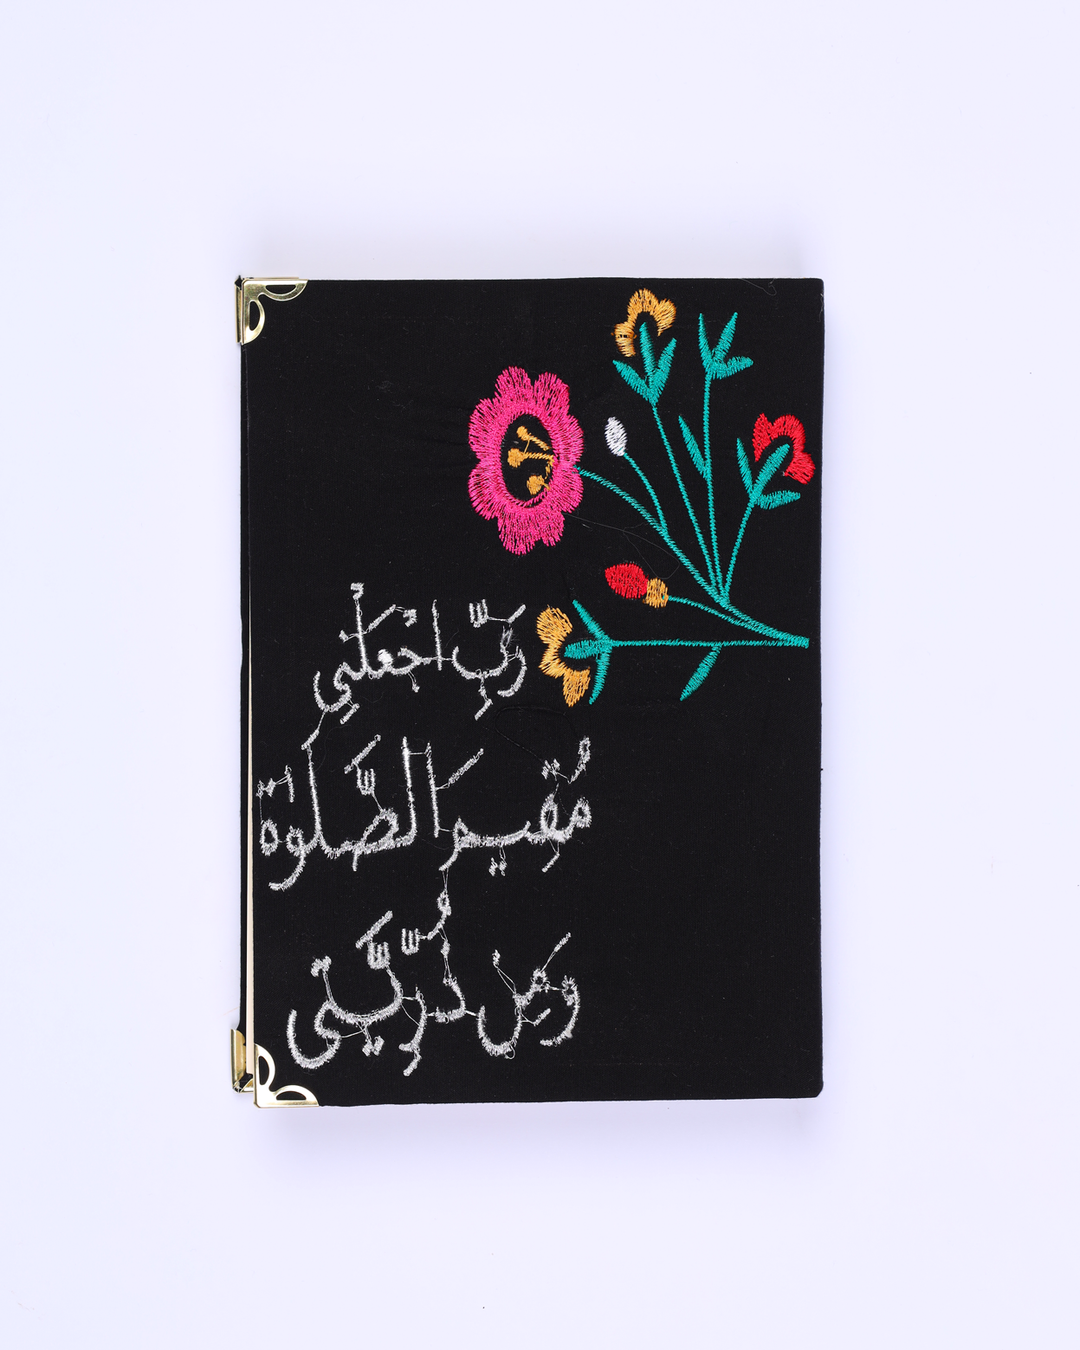 رَبِّ اجْعَلْنِي
مُقِيمَ الصَّلَوٰةِ
وَمِن ذُرِّيَّتِي